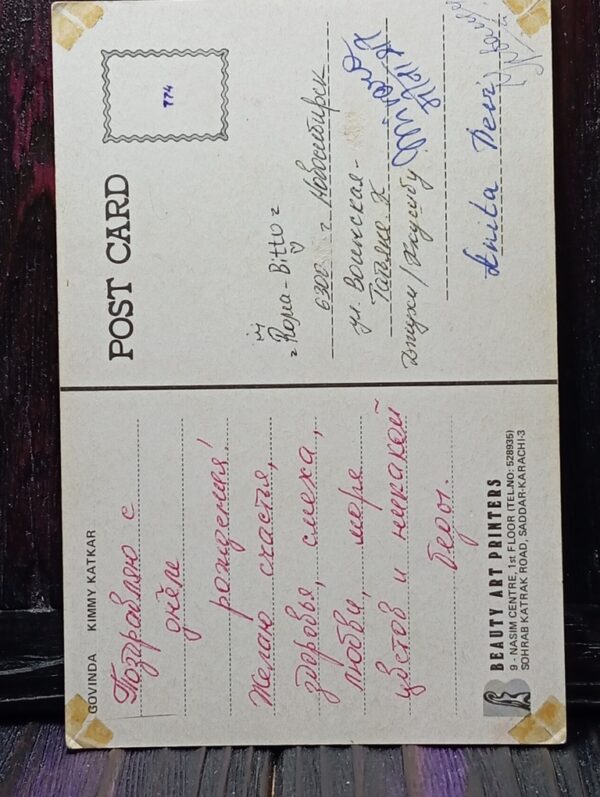 GOVINDA KIMMY KATKAR
Поздравляю с
днём
рождения!
Желаю счастья,
здоровья, смеха,
любви, моря
цветов и никакой
беды.
BEAUTY ART PRINTERS
9 - NASIM CENTRE, 1st FLOOR (TEL.NO: 528935)
SOHRAB KATRAK ROAD, SADDAR-KARACHI-3
POST CARD
774
"Кора-Bitto"
6300 г. Новосибирск
ул. Воинская -
Татьяне К
Anita